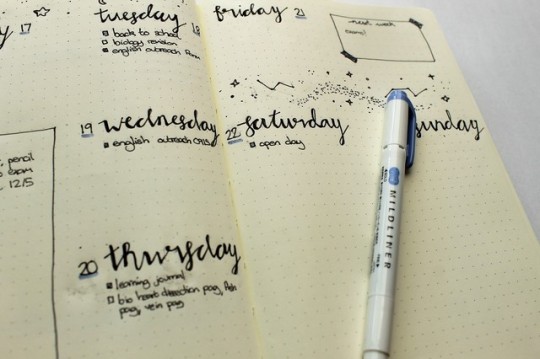 17
tuesday 18
back to school
biology revision
english outreach
19 wednesday
english outreach
pencil
exam
12/5
20 thursday
learning journal
bio heart dissection pag,
pag, vein pag
friday 21
next week
22 saturday
open day
sunday
MILDLINER